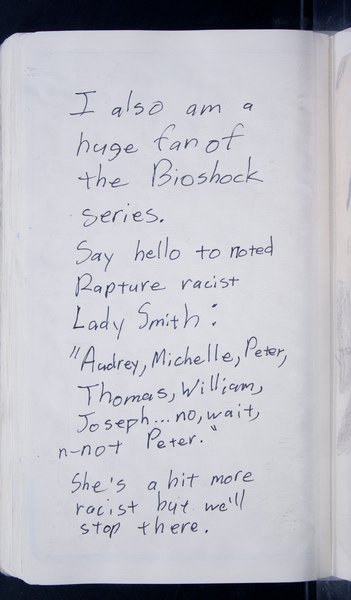 I also am a
huge fan of
the Bioshock
series.
Say hello to noted
Rapture racist
Lady Smith:
"Audrey, Michelle, Peter,
Thomas, William,
Joseph... no, wait,
n-not Peter."
She's a bit more
racist but we'll
stop there.